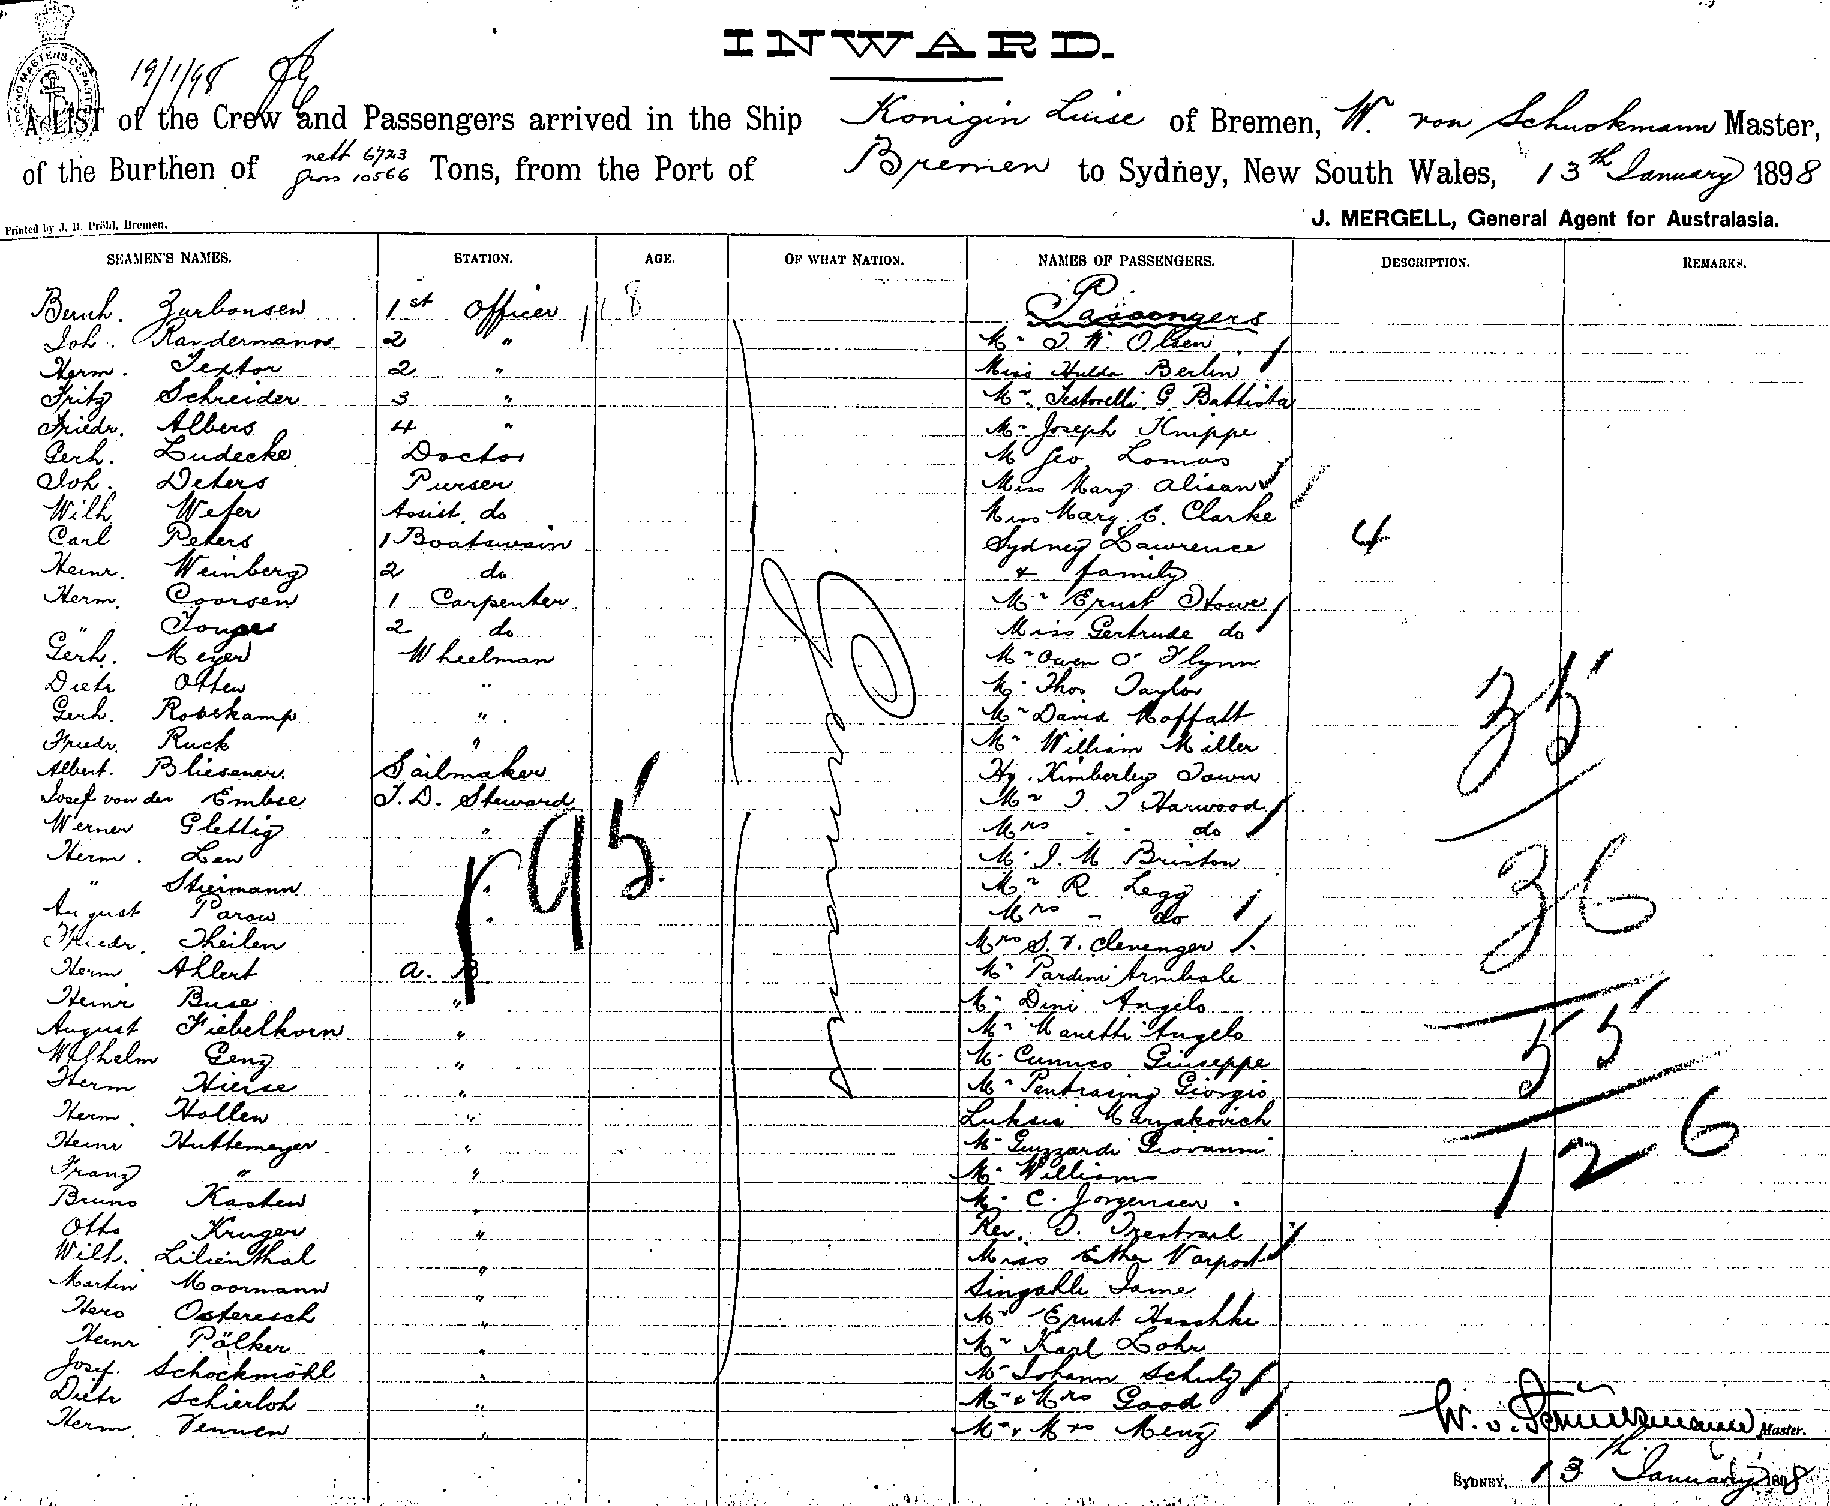 INWARD.
19/1/98
A LIST of the Crew and Passengers arrived in the Ship Konigin Luise of Bremen, W. von Schuckmann Master,
of the Burthen of nett 6723 gross 10566 Tons, from the Port of Bremen to Sydney, New South Wales, 13th January 1898
Printed by J. H. Pröhl, Bremen.
J. MERGELL, General Agent for Australasia.
SEAMEN'S NAMES. STATION. AGE. OF WHAT NATION. NAMES OF PASSENGERS. DESCRIPTION. REMARKS.
Bernh. Zurbonsen 1st Officer Passengers
Joh. Randermann 2 " Mr. J. W. Olsen
Herm. Textor 2 " Miss Hulda Berlin
Fritz Schreider 3 " Mr. Testorelli G. Battista
Friedr. Albers 4 " Mr Joseph Knippe
Gerh. Ludecke Doctor M Geo Lomas
Joh. Deters Purser Miss Mary Alison
Wilh. Wefer Assist. do Miss Mary E. Clarke
Carl Peters 1 Boatswain Sydney Lawrence 4
Heinr. Weinberg 2 do & family
Herm. Coorsen 1 Carpenter Mr Ernst Howe
" 2 do Miss Gertrude do
Gerh. Meyer Wheelman Mr Owen O'Flynn
Dietr Otten " Mr. Thos Taylor
Gerh. Rooskamp " Mr David Moffatt
Friedr. Ruck " Mr William Miller
Albert. Bliesener Sailmaker Hy. Kimberley Town
Josef von der Embse T. D. Steward Mr J. T Harwood
Werner Glettig " Mrs " do
Herm. Leu Mr. J. M Brixton
" Stegmann " Mr R Legg
August Parow " Mrs " do
Friedr. Theilen Mrs S. V. Clevenger
Herm Ahlert A. B Mr Pardini Annibale
Heinr Buse " Mr Dini Angelo
August Fiebelkorn " Mr Manetti Angelo
Wilhelm Genz " Mr Cunico Giuseppe
Herm Hierse " Mr Pentrasing Giorgio
Herm. Hollen " Luksia Maryakovich
Heinr Huttemeyer " Mr Guzzardi Giovanni
Franz " " Mr. Williams
Bruno Kasten " Mr. C. Jorgensen
Otto Kruger " Rev. J. Trestrail
Wilh. Lilienthal " Miss Esther
Martin Moormann " Singahli Jame
Hero Osteresch " Mr Ernst Haschke
Heinr Pölker " Mr Karl Lohr
Josef Schockmöhl " Mr Johann Schulz
Dietr Schierloh " Mr & Mrs Good
Herm. Vennen " Mr & Mrs Menz
Germany
195
35
36
55
126
W. v. Schuckmann Master.
SYDNEY, 13th January 1898